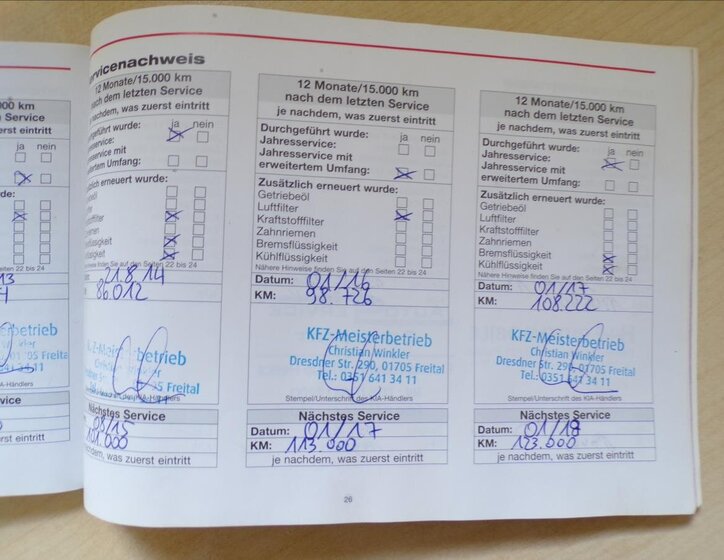 rvicenachweis
00 km
n Service
erst eintritt
ja nein
de:
eiten 22 bis 24
13
etrieb
05 Freital
4 11
KIA-Händlers
vice
erst eintritt
12 Monate/15.000 km
nach dem letzten Service
je nachdem, was zuerst eintritt
geführt wurde: ja nein
service:
service mit
tertem Umfang:
zlich erneuert wurde:
edeöl
lter
offfilter
iemen
flüssigkeit
ssigkeit
inweise finden Sie auf den Seiten 22 bis 24
21.8.14
86.012
KFZ-Meisterbetrieb
Christian Winkler
05 Freital
KIA-Händlers
Nächstes Service
08/15
101.000
dem, was zuerst eintritt
12 Monate/15.000 km
nach dem letzten Service
je nachdem, was zuerst eintritt
Durchgeführt wurde: ja nein
Jahresservice:
Jahresservice mit
erweitertem Umfang:
Zusätzlich erneuert wurde:
Getriebeöl
Luftfilter
Kraftstofffilter
Zahnriemen
Bremsflüssigkeit
Kühlflüssigkeit
Nähere Hinweise finden Sie auf den Seiten 22 bis 24
Datum: 01/16
KM: 98.726
KFZ-Meisterbetrieb
Christian Winkler
Dresdner Str. 290, 01705 Freital
Tel.: 0351 641 34 11
Stempel/Unterschrift des KIA-Händlers
Nächstes Service
Datum: 01/17
KM: 113.000
je nachdem, was zuerst eintritt
12 Monate/15.000 km
nach dem letzten Service
je nachdem, was zuerst eintritt
Durchgeführt wurde: ja nein
Jahresservice:
Jahresservice mit
erweitertem Umfang:
Zusätzlich erneuert wurde:
Getriebeöl
Luftfilter
Kraftstofffilter
Zahnriemen
Bremsflüssigkeit
Kühlflüssigkeit
Nähere Hinweise finden Sie auf den Seiten 22 bis 24
Datum: 01/17
KM: 108.222
KFZ-Meisterbetrieb
Christian Winkler
Dresdner Str. 290, 01705 Freital
Tel.: 0351 641 34 11
Stempel/Unterschrift des KIA-Händlers
Nächstes Service
Datum: 01/18
KM: 123.000
je nachdem, was zuerst eintritt
26